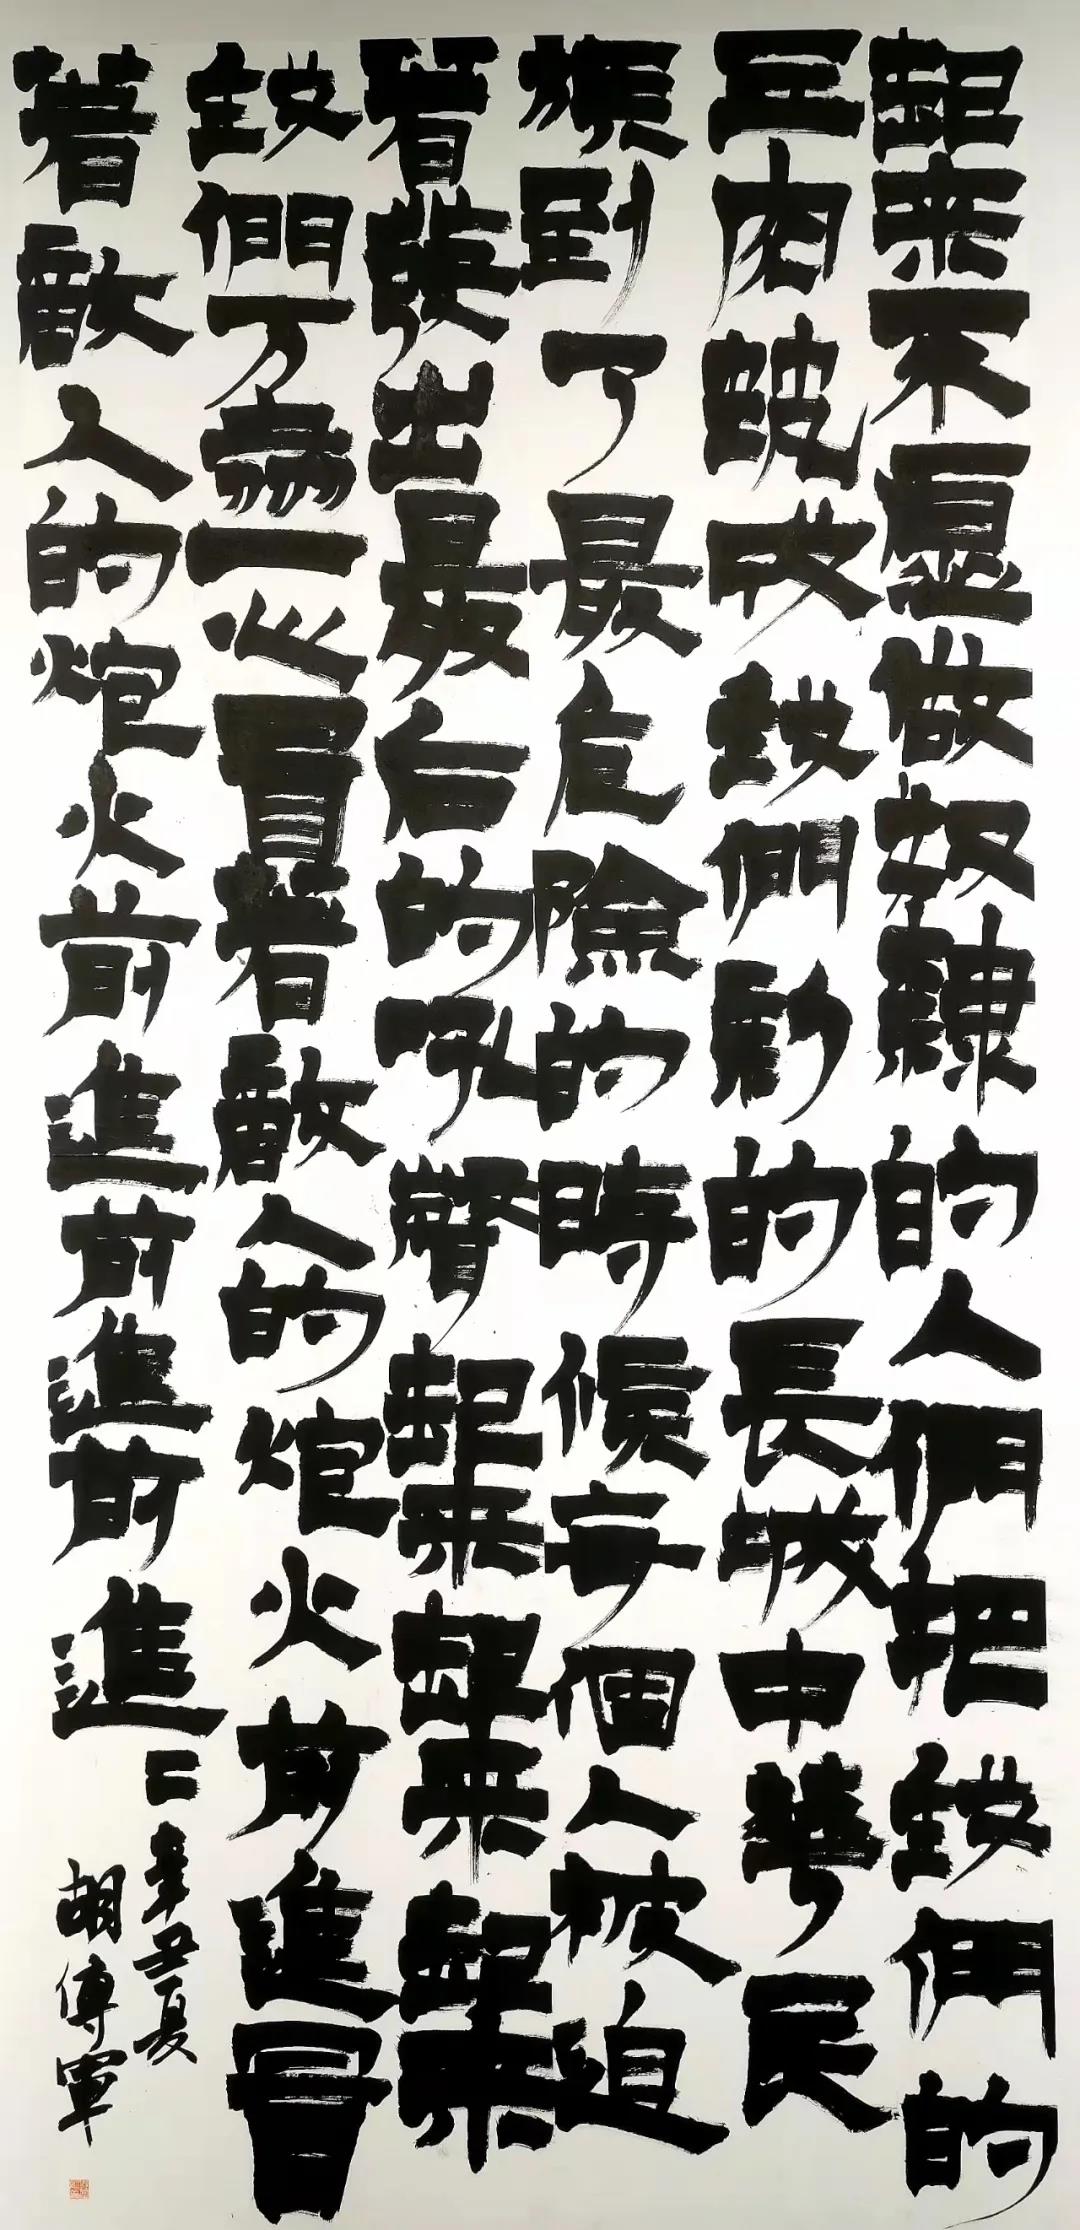 起来不愿做奴隸的人們把我們的
血肉築成我們新的長城中華民
族到了最危險的時候每個人被迫
着發出最后的吼聲起来起来起来
我們万衆一心冒著敵人的炮火前進冒
著敵人的炮火前進前進前進二
辛丑夏
胡傳軍